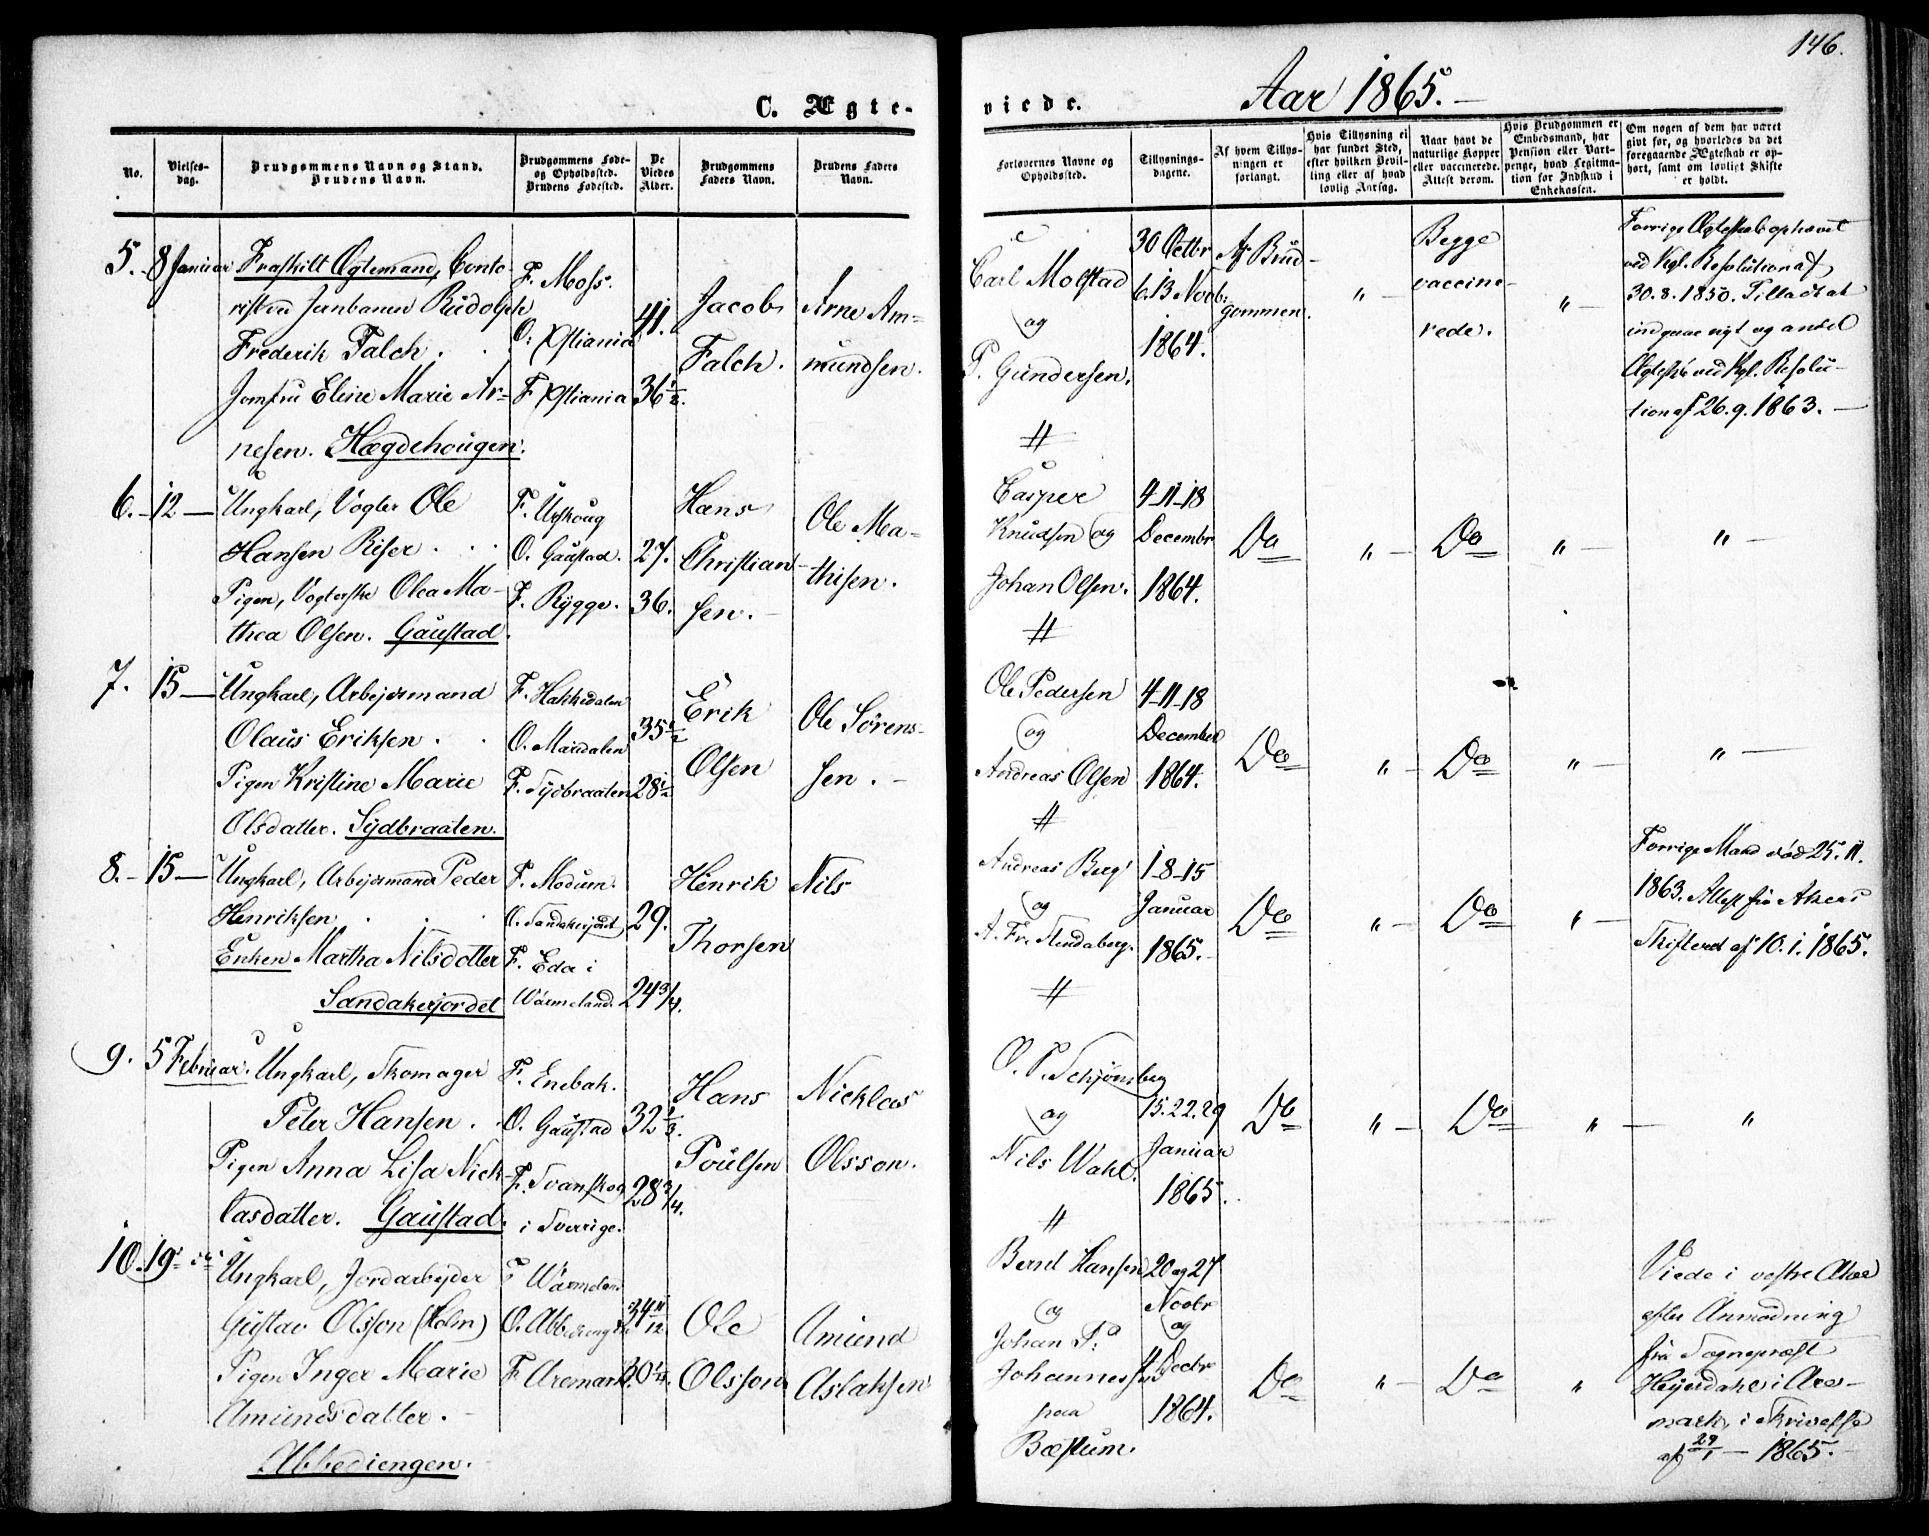 146.
C. Ægte-
viede.
Aar 1865.
No.
Vielses-
dag.
Brudgommens Navn og Stand.
Brudens Navn.
Brudgommens Føde-
og Opholdssted.
Brudens Fødested.
De
Viedes
Alder.
Brudgommens
Faders Navn.
Brudens Faders
Navn.
Forlovernes Navne og
Opholdssted.
Tillysnings-
dagene.
Af hvem Tillys-
ningen er
forlangt.
Hvis Tillysning ei
har fundet Sted,
efter hvilken Bevil-
ling eller af hvad
lovlig Aarsag.
Naar havt de
naturlige Kopper
eller vaccinerede.
Attest derom.
Hvis Brudgommen er
Embedsmand, har
Pension eller Vart-
penge, hvad Legitma-
tion for Indskud i
Enkekassen.
Om nogen af dem har været
givt før, og hvorledes da det
foregaaende Ægteskab er op-
hørt, samt om lovligt Skifte
er holdt.
5. 8 Januar
Fraskilt Ægtemand, Conto-
rist ved Jernbanen Rudolph
Frederik Falch.
Jomfru Eline Marie Ar-
nesen. Hægdehougen.
F. Moss.
O: Xstiania
F. Xstiania
41.
36 1/2.
Jacob
Falch.
Arne Am-
mundsen.
Carl Molstad
og
P. Gundersen.
30 Octbr
6. 13 Novb:
1864.
Af Brud-
gommen.
"
Begge
vaccine-
rede.
"
Forrige Ægteskab ophævet
ved Kgl. Resolution af
30.8.1850. Tilladt at
indgaae nyt og andet
Ægtesk: ved Kgl. Resolu-
tion af 26.9.1863.
6. 12
Ungkarl, Vogter Ole
Hansen Riser.
Pigen, Vogterske Olea Ma-
thea Olsen. Gaustad.
F. Urskoug
O. Gaustad.
F. Rygge.
27.
36.
Hans
Christian-
sen.
Ole Ma-
thisen.
Casper
Knudsen og
Johan Olsen.
4-11-18
Decembr
1864.
Do
"
Do
"
"
7. 15
Ungkarl, Arbejdsmand
Olaus Eriksen.
Pigen Kristine Marie
Olsdatter. Sydbraaten.
F. Hakkedalen
O. Maridalen
F. Sydbraaten
35 1/2
28 1/2
Erik
Olsen
Ole Sörens-
sen.
Ole Pedersen
og
Andreas Olsen
4-11-18
December
1864.
Do
"
Do
"
"
8. 15
Ungkarl, Arbejdsmand Peder
Henriksen
Enken Martha Nilsdatter
Sandakerjordet
F. Modum.
O. Sandakerjordet
F. Eda i
Wärmeland.
29.
24 3/4.
Henrik
Thorsen
Nils
Andreas Berg
og
1-8-15
Januar
1865.
Do
"
Do
"
Forrige Mand død 25.11.
1863. Attest fra Akers
Skifteret af 10.1.1865.
9. 5 Februar.
Ungkarl, Skomager
Peter Hansen.
Pigen Anna Lisa Nick-
lasdatter. Gaustad.
F. Enebak.
O. Gaustad
F. Svanskog
i Sverrige.
32 1/3.
28 3/4.
Hans
Poulsen
Nicklas
Olsson.
O. P. Schjønsberg
og
Nils Wahl.
15.22.29
Januar
1865.
Do
"
Do
"
"
10. 19
Ungkarl, Jordarbejder
Gustav Olsson (Holm)
Pigen Inger Marie
Amundsdatter.
Abbediengen.
F Wärmelan
O. Abbedieng
F. Aremark.
34 11/12
30 1/4.
Ole
Olsson
Amund
Aslaksen
Bernt Hansen
og
Johan P:
Johannessen
paa
Bæstum.
20 og 27
Novbr
og
4 Decbr
1864.
Do
"
Do
"
Viede i vestre Aker
efter Anmodning
fra Sognepræst
Heyerdahl i Are-
mark, i Skrivelse
af 29/1 1865.